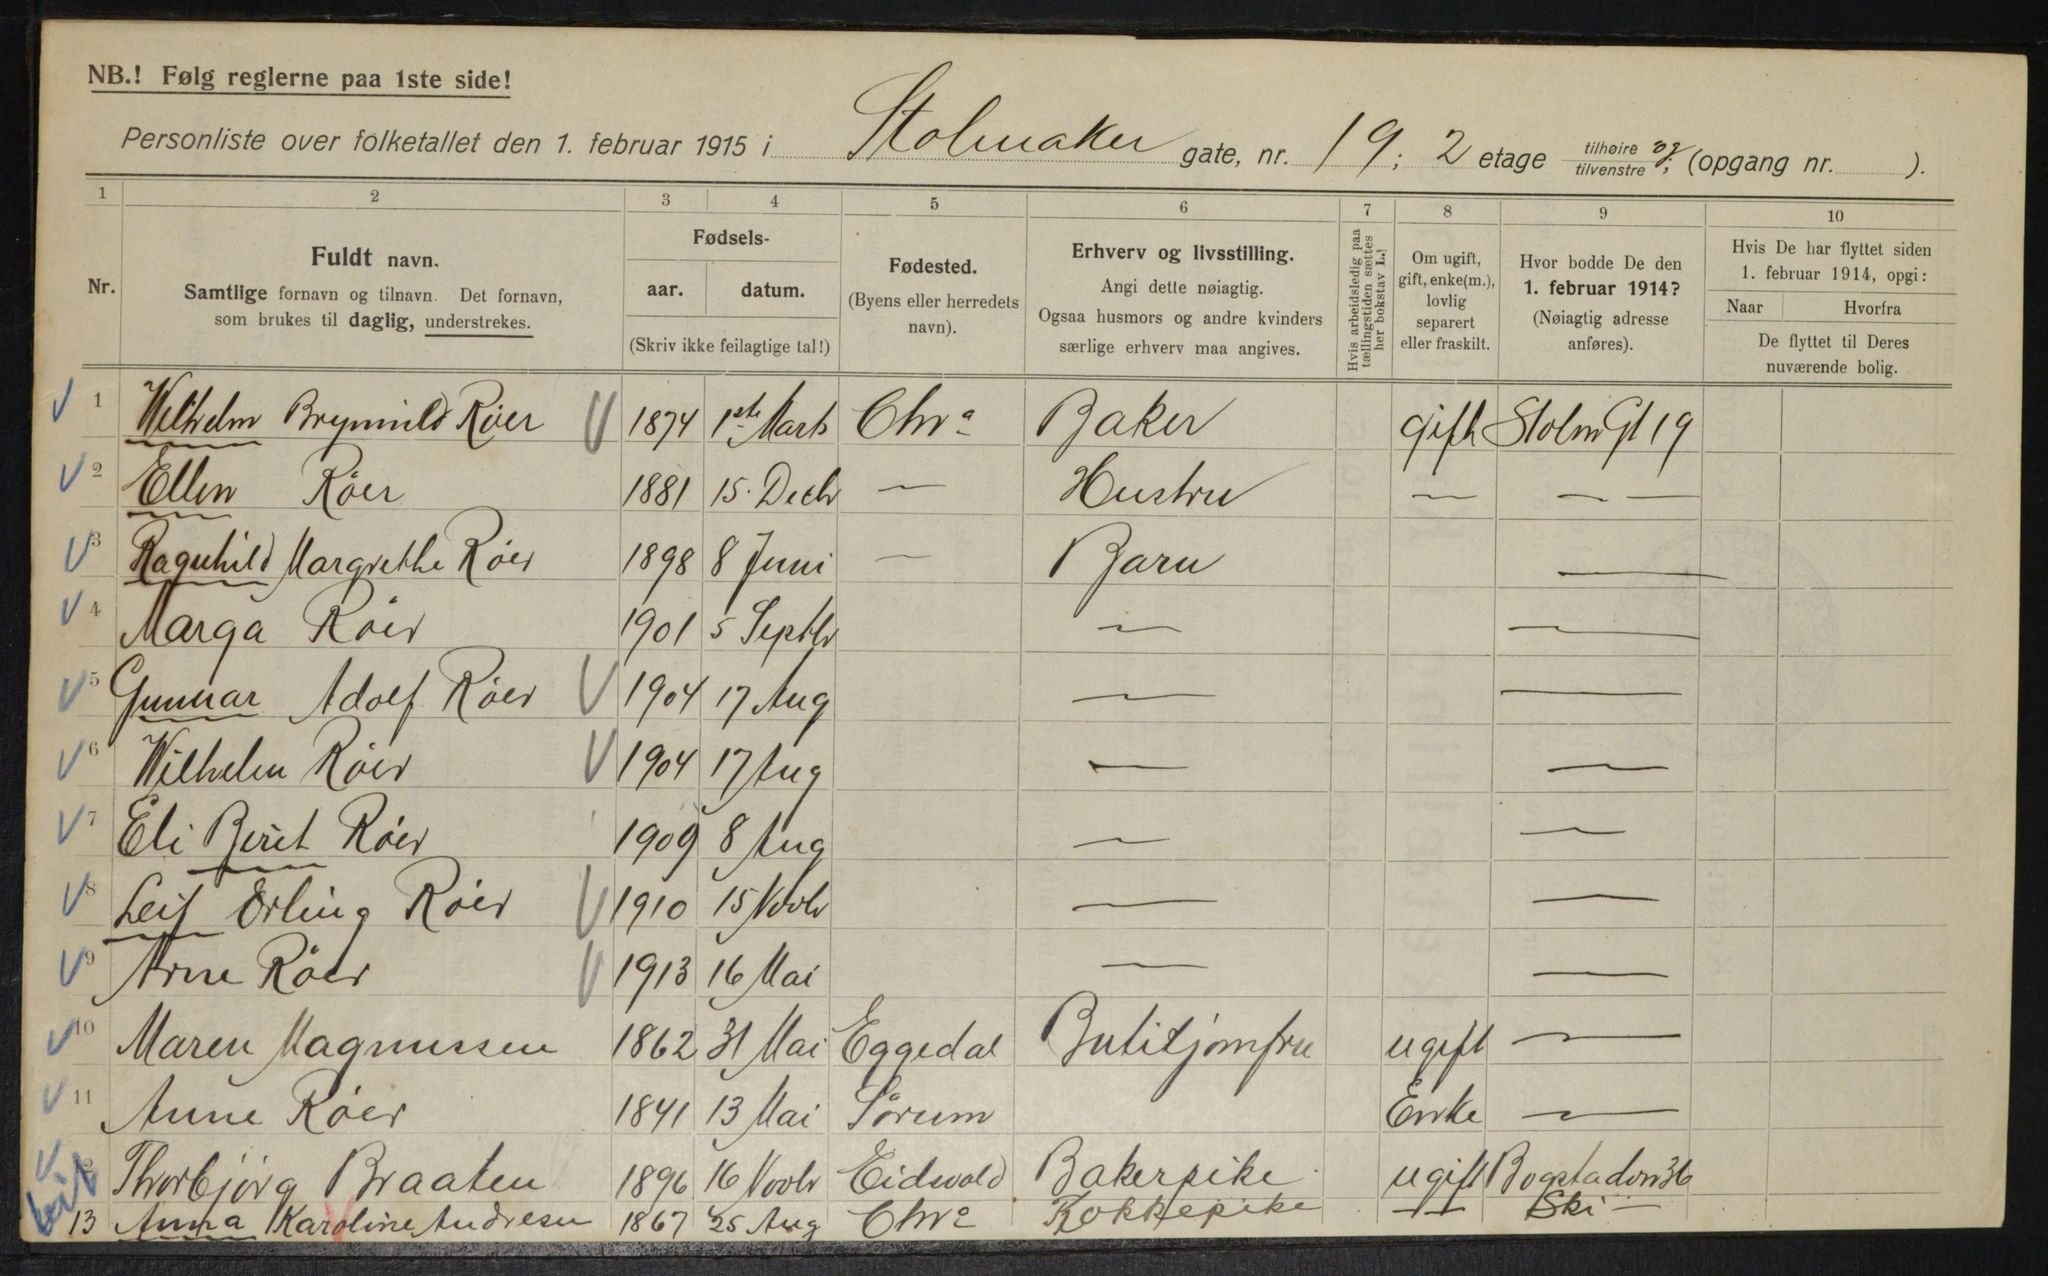 NB.! Følg reglerne paa 1ste side!
Personliste over folketallet den 1. februar 1915 i Stolmaker gate, nr. 19; 2 etage tilhøire og tilvenstre; (opgang nr. ).
1 2 3 4 5 6 7 8 9 10
Nr.
Fuldt navn.
Samtlige fornavn og tilnavn. Det fornavn,
som brukes til daglig, understrekes.
Fødsels-
aar. datum.
(Skriv ikke feilagtige tal!)
Fødested.
(Byens eller herredets
navn).
Erhverv og livsstilling.
Angi dette nøiagtig.
Ogsaa husmors og andre kvinders
særlige erhverv maa angives.
Hvis arbeidsledig paa
tællingstiden sættes
her bokstav L.
Om ugift,
gift, enke(m.),
lovlig
separert
eller fraskilt.
Hvor bodde De den
1. februar 1914?
(Nøiagtig adresse
anføres).
Hvis De har flyttet siden
1. februar 1914, opgi:
Naar Hvorfra
De flyttet til Deres
nuværende bolig.
1 Wilhelm Brynnild Röer 1874 1ste Marts Chra Baker gift Stolm Gt 19
2 Ellen Röer 1881 15. Decbr — Hustru — — —
3 Ragnhild Margrethe Röer 1898 8 Juni — Barn —
4 Marga Röer 1901 5 Septbr — —
5 Gunnar Adolf Röer 1904 17 Aug — —
6 Wilhelm Röer 1904 17 Aug — —
7 Eli Berit Röer 1909 8 Aug — —
8 Leif Erling Röer 1910 15 Novbr — —
9 Arne Röer 1913 16 Mai — —
10 Maren Magnussen 1862 31 Mai Eggedal Butikjomfru ugift —
11 Anne Röer 1841 13 Mai Sörum Enke —
12 Thorbjörg Braaten 1896 16 Novbr Eidsvold Bakerpike ugift Bogstadvn 36
13 Anna Karoline Andresen 1867 25 Aug Chra Kokkepike — — Ski —